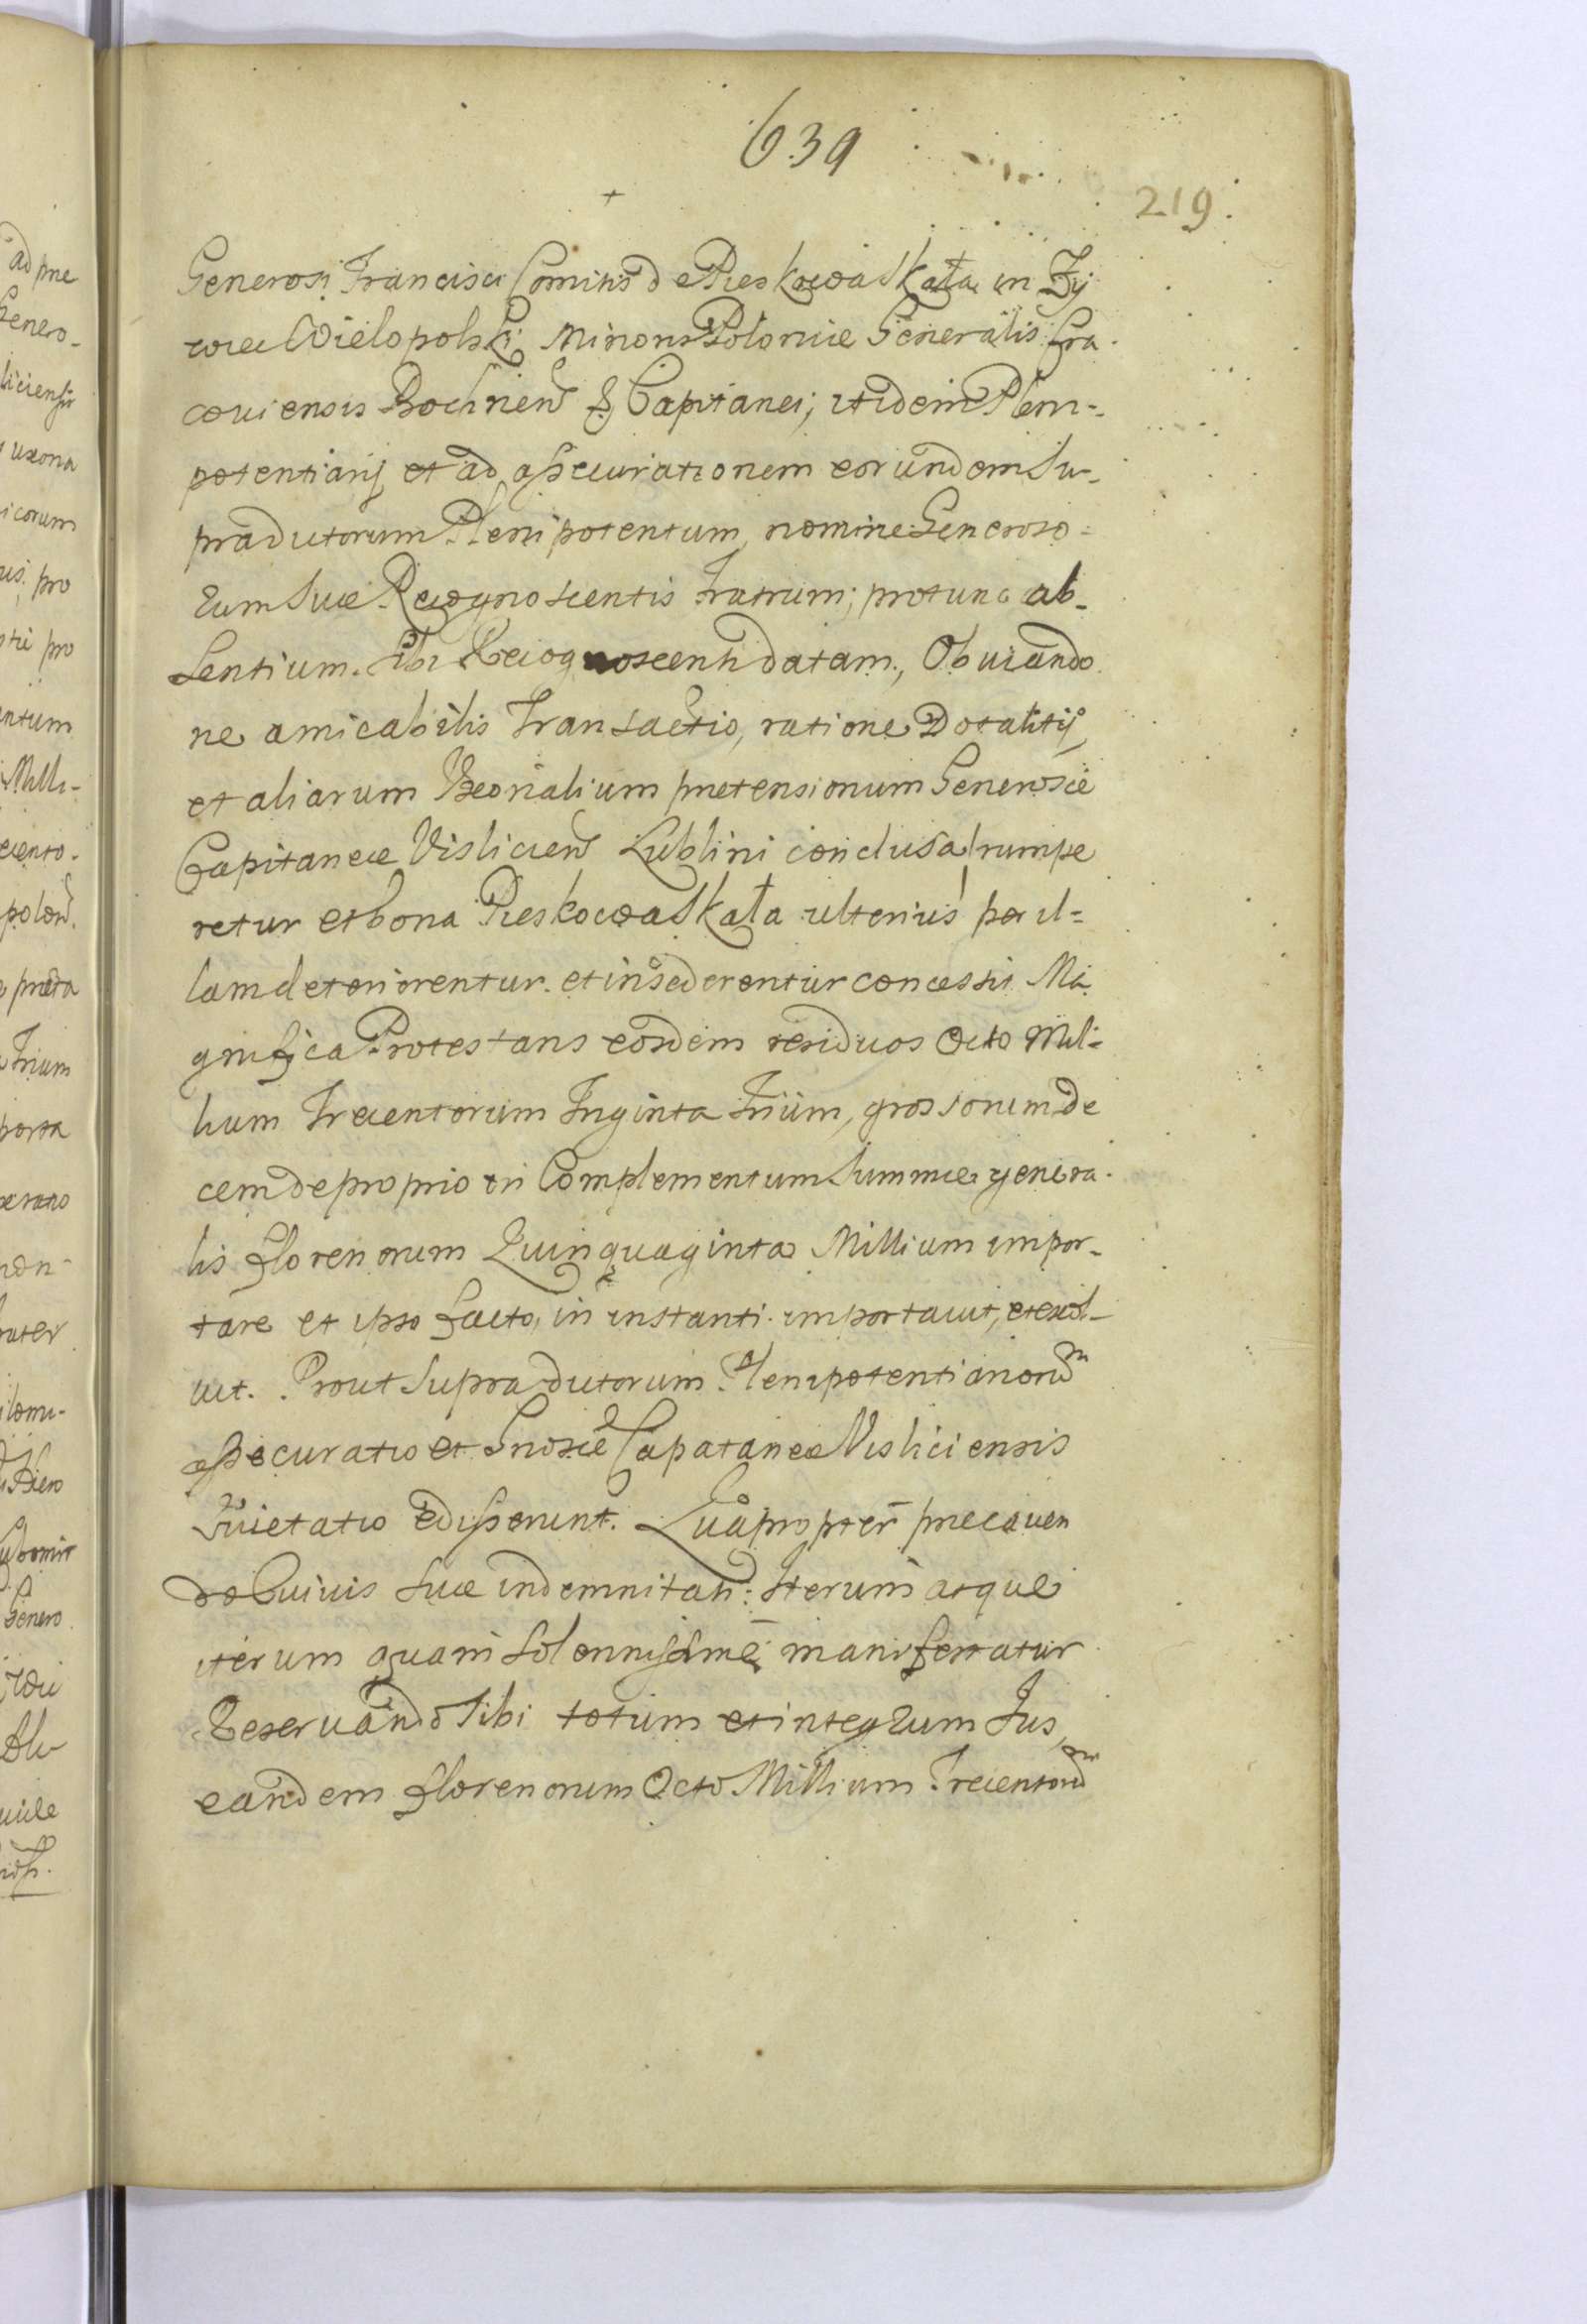 639
219.
Generosi Francisci Comitis de Pieskowa Skała in Zy
wiec Wielopolski Minoris Poloniæ Generalis Cra-
coviensis Bochnen & Capitanei; itidem Pleni-
potentiarij et ad assecurationem eorundem Su-
pradictorum Plenipotentum, nomine Generoso-
rum Suæ Recognoscentis Fratrum; pro tunc ab-
sentium. Sibi Recognoscenti datam., Obviando
ne amicabilis Transactio, ratione Dotalitij,
et aliarum Bonalium prætensionum Generosæ
Capitaneæ Visliciens Lublini conclusa rumpe
retur et bona Pieskowa Skała ulterius per il-
lam deteriorentur. et insederentur concessis Ma
gnifica Protestans eosdem residuos Octo Mil-
lium Trecentorum Triginta Trium, grossorum de
cem de proprio in Complementum Summæ genera-
lis Florenorum Quinquaginta Millium impor-
tare et ipso facto, in instanti importavit, et exol-
vit. Prout Supradictorum Plenipotentiariorum
assecuratio et Gnosæ Capataneæ Visliciensis
Quietatio edisserunt. Quapropter præcaven
do Cuivis Suæ indemnitati: Iterum atque
iterum quam solennissime manifestatur
Reservando Sibi totum et integrum Jus,
eandem Florenorum Octo Millium Trecentorum
ad præ
Genero-
liciensis
uxoria
icorum
pro
pro
entum
Milli-
præta
Trium
porta
Genero